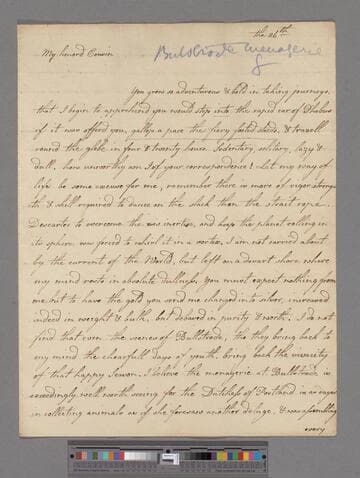 the 26th
Bulstrode Menagerie
My honord Cousin
You grow so adventurous & bold in taking journeys,
that I begin to apprehend you would step into the rapid car of Phoebus
if it was afford you, gallop a pace the fiery footed steeds, & travell
round the globe in four & twenty hours. Sedentary, solitary, lazy &
dull, how unworthy am I of your correspondence! Let my way of
life be some excuse for me, remember there is more of vigor strength
& skill required to dance on the slack than the strait rope.
Descartes to overcome the vis inertiae, and keep the planet rolling in
its sphere was forced to whirl it in a vortex, I am not carried about
by the current of the World, but left on a desart shore where
my mind rests in absolute dullness. You must expect nothing from
me but to have the gold you send me changed into silver, increased
indeed in weight & bulk, but debased in purity & worth. I do not
find that even the scenes of Bullstrode, tho they bring back to
my mind the chearfull days of youth, bring back the vivacity
of that happy season. I believe the menagerie at Bullstrode is
exceedingly well worth seeing for the Dutchess of Portland is as eager
in collecting animals as if she foresaw another deluge, & was assembling
every